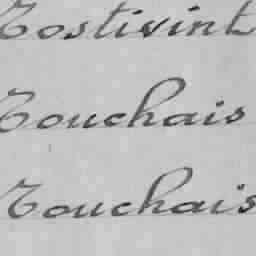 Tostivint
Touchais
Touchais